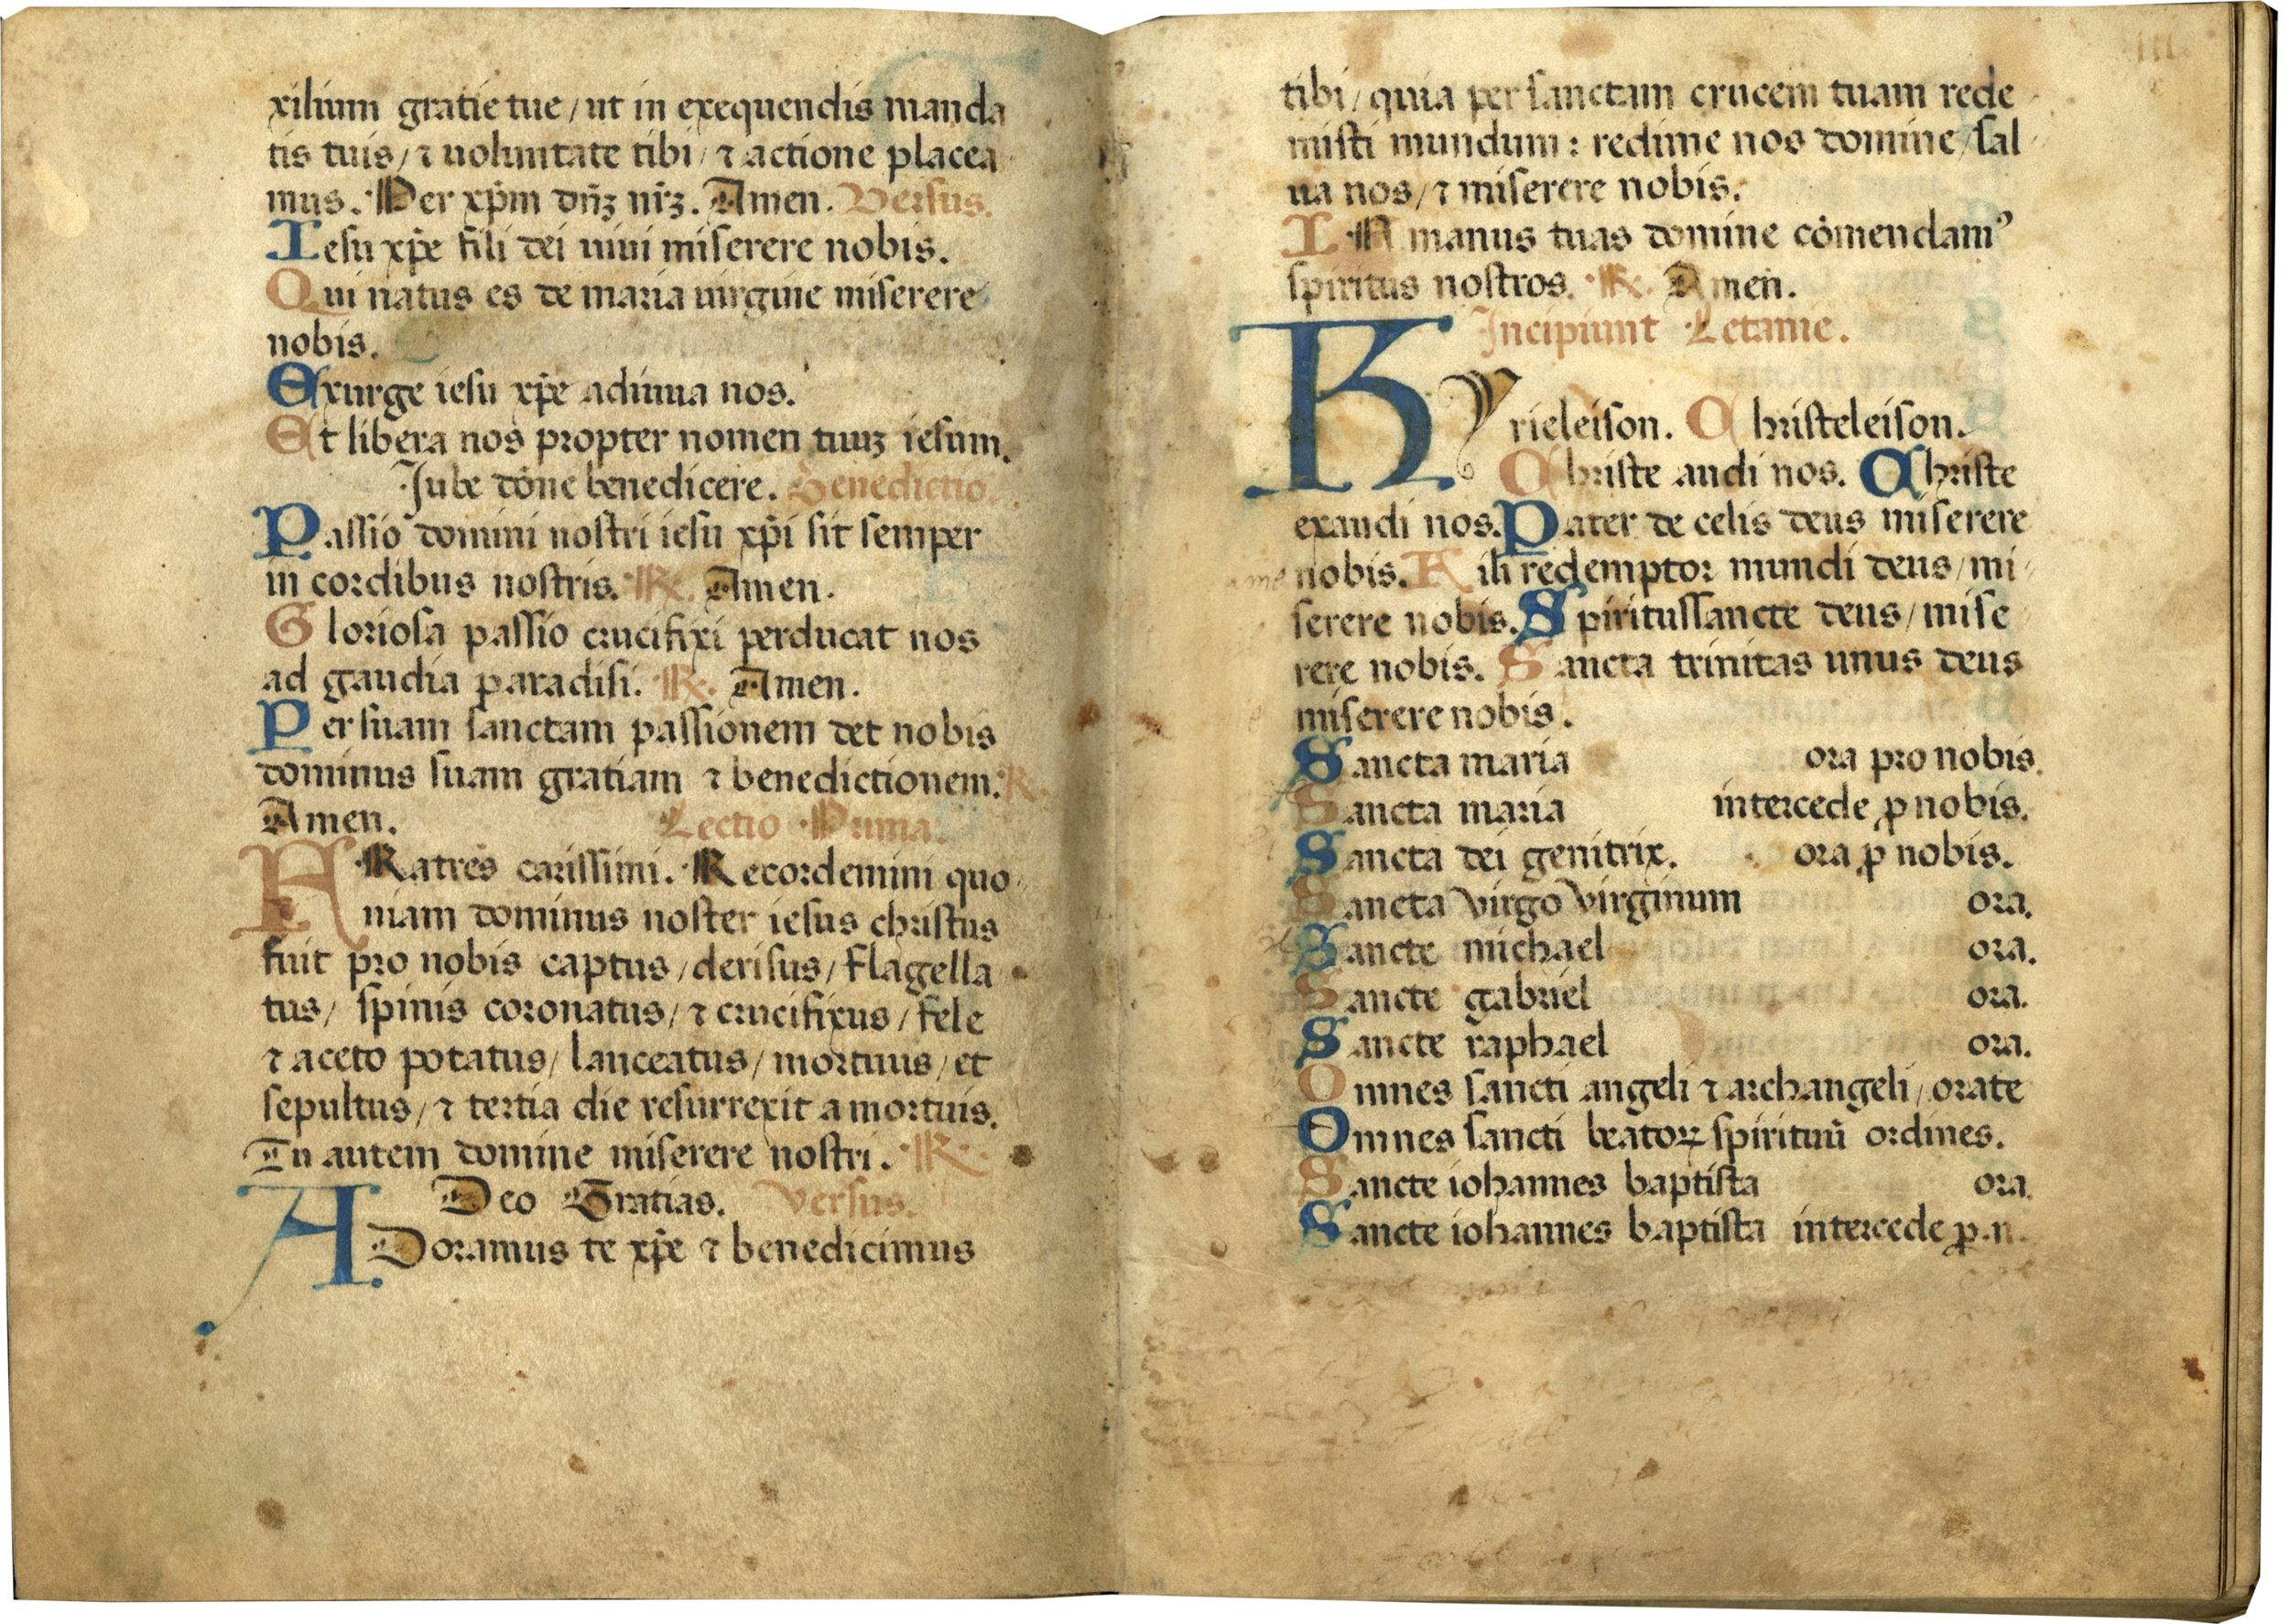 xilium gratie tue / ut in exequendis manda
tis tuis / ⁊ uoluntate tibi / ⁊ actione placea
mus. Per xp̄m dn̄ꝫ nr̄ꝫ. Amen. Versus.
Iesu xp̄e fili dei uiui miserere nobis.
Qui natus es de maria uirgine miserere
nobis.
Exurge iesu xp̄e adiuua nos.
Et libera nos propter nomen tuuꝫ iesum.
Iube dōne benedicere. Benedictio.
Passio domini nostri iesu xp̄i sit semper
in cordibus nostris. R. Amen.
Gloriosa passio crucifixi perducat nos
ad gaudia paradisi. R. Amen.
Per suam sanctam passionem det nobis
dominus suam gratiam ⁊ benedictionem. R.
Amen. Lectio Prima.
FRatres carissimi. Recordemini quo
niam dominus noster iesus christus
fuit pro nobis captus / derisus / flagella
tus / spinis coronatus / ⁊ crucifixus / fele
⁊ aceto potatus / lanceatus / mortuus / et
sepultus / ⁊ tertia die resurrexit a mortuis.
Tu autem domine miserere nostri. R.
Deo Gratias. Versus.
ADoramus te xp̄e ⁊ benedicimus
tibi / quia per sanctam crucem tuam rede
misti mundum : redime nos domine / sal
ua nos / ⁊ miserere nobis.
IN manus tuas domine cōmendamꝰ
spiritus nostros. R. Amen.
Incipiunt Letanie.
Kyrieleison. Christeleison.
Christe audi nos. Christe
exaudi nos. Pater de celis deus miserere
nobis. Fili redemptor mundi deus / mi
serere nobis. Spiritussancte deus / mise
rere nobis. Sancta trinitas unus deus
miserere nobis.
Sancta maria ora pro nobis.
Sancta maria intercede ꝓ nobis.
Sancta dei genitrix. ora ꝓ nobis.
Sancta virgo virginum ora.
Sancte michael ora.
Sancte gabriel ora.
Sancte raphael ora.
Omnes sancti angeli ⁊ archangeli / orate
Omnes sancti beatoꝝ spirituū ordines.
Sancte iohannes baptista ora.
Sancte iohannes baptista intercede ꝓ.n.